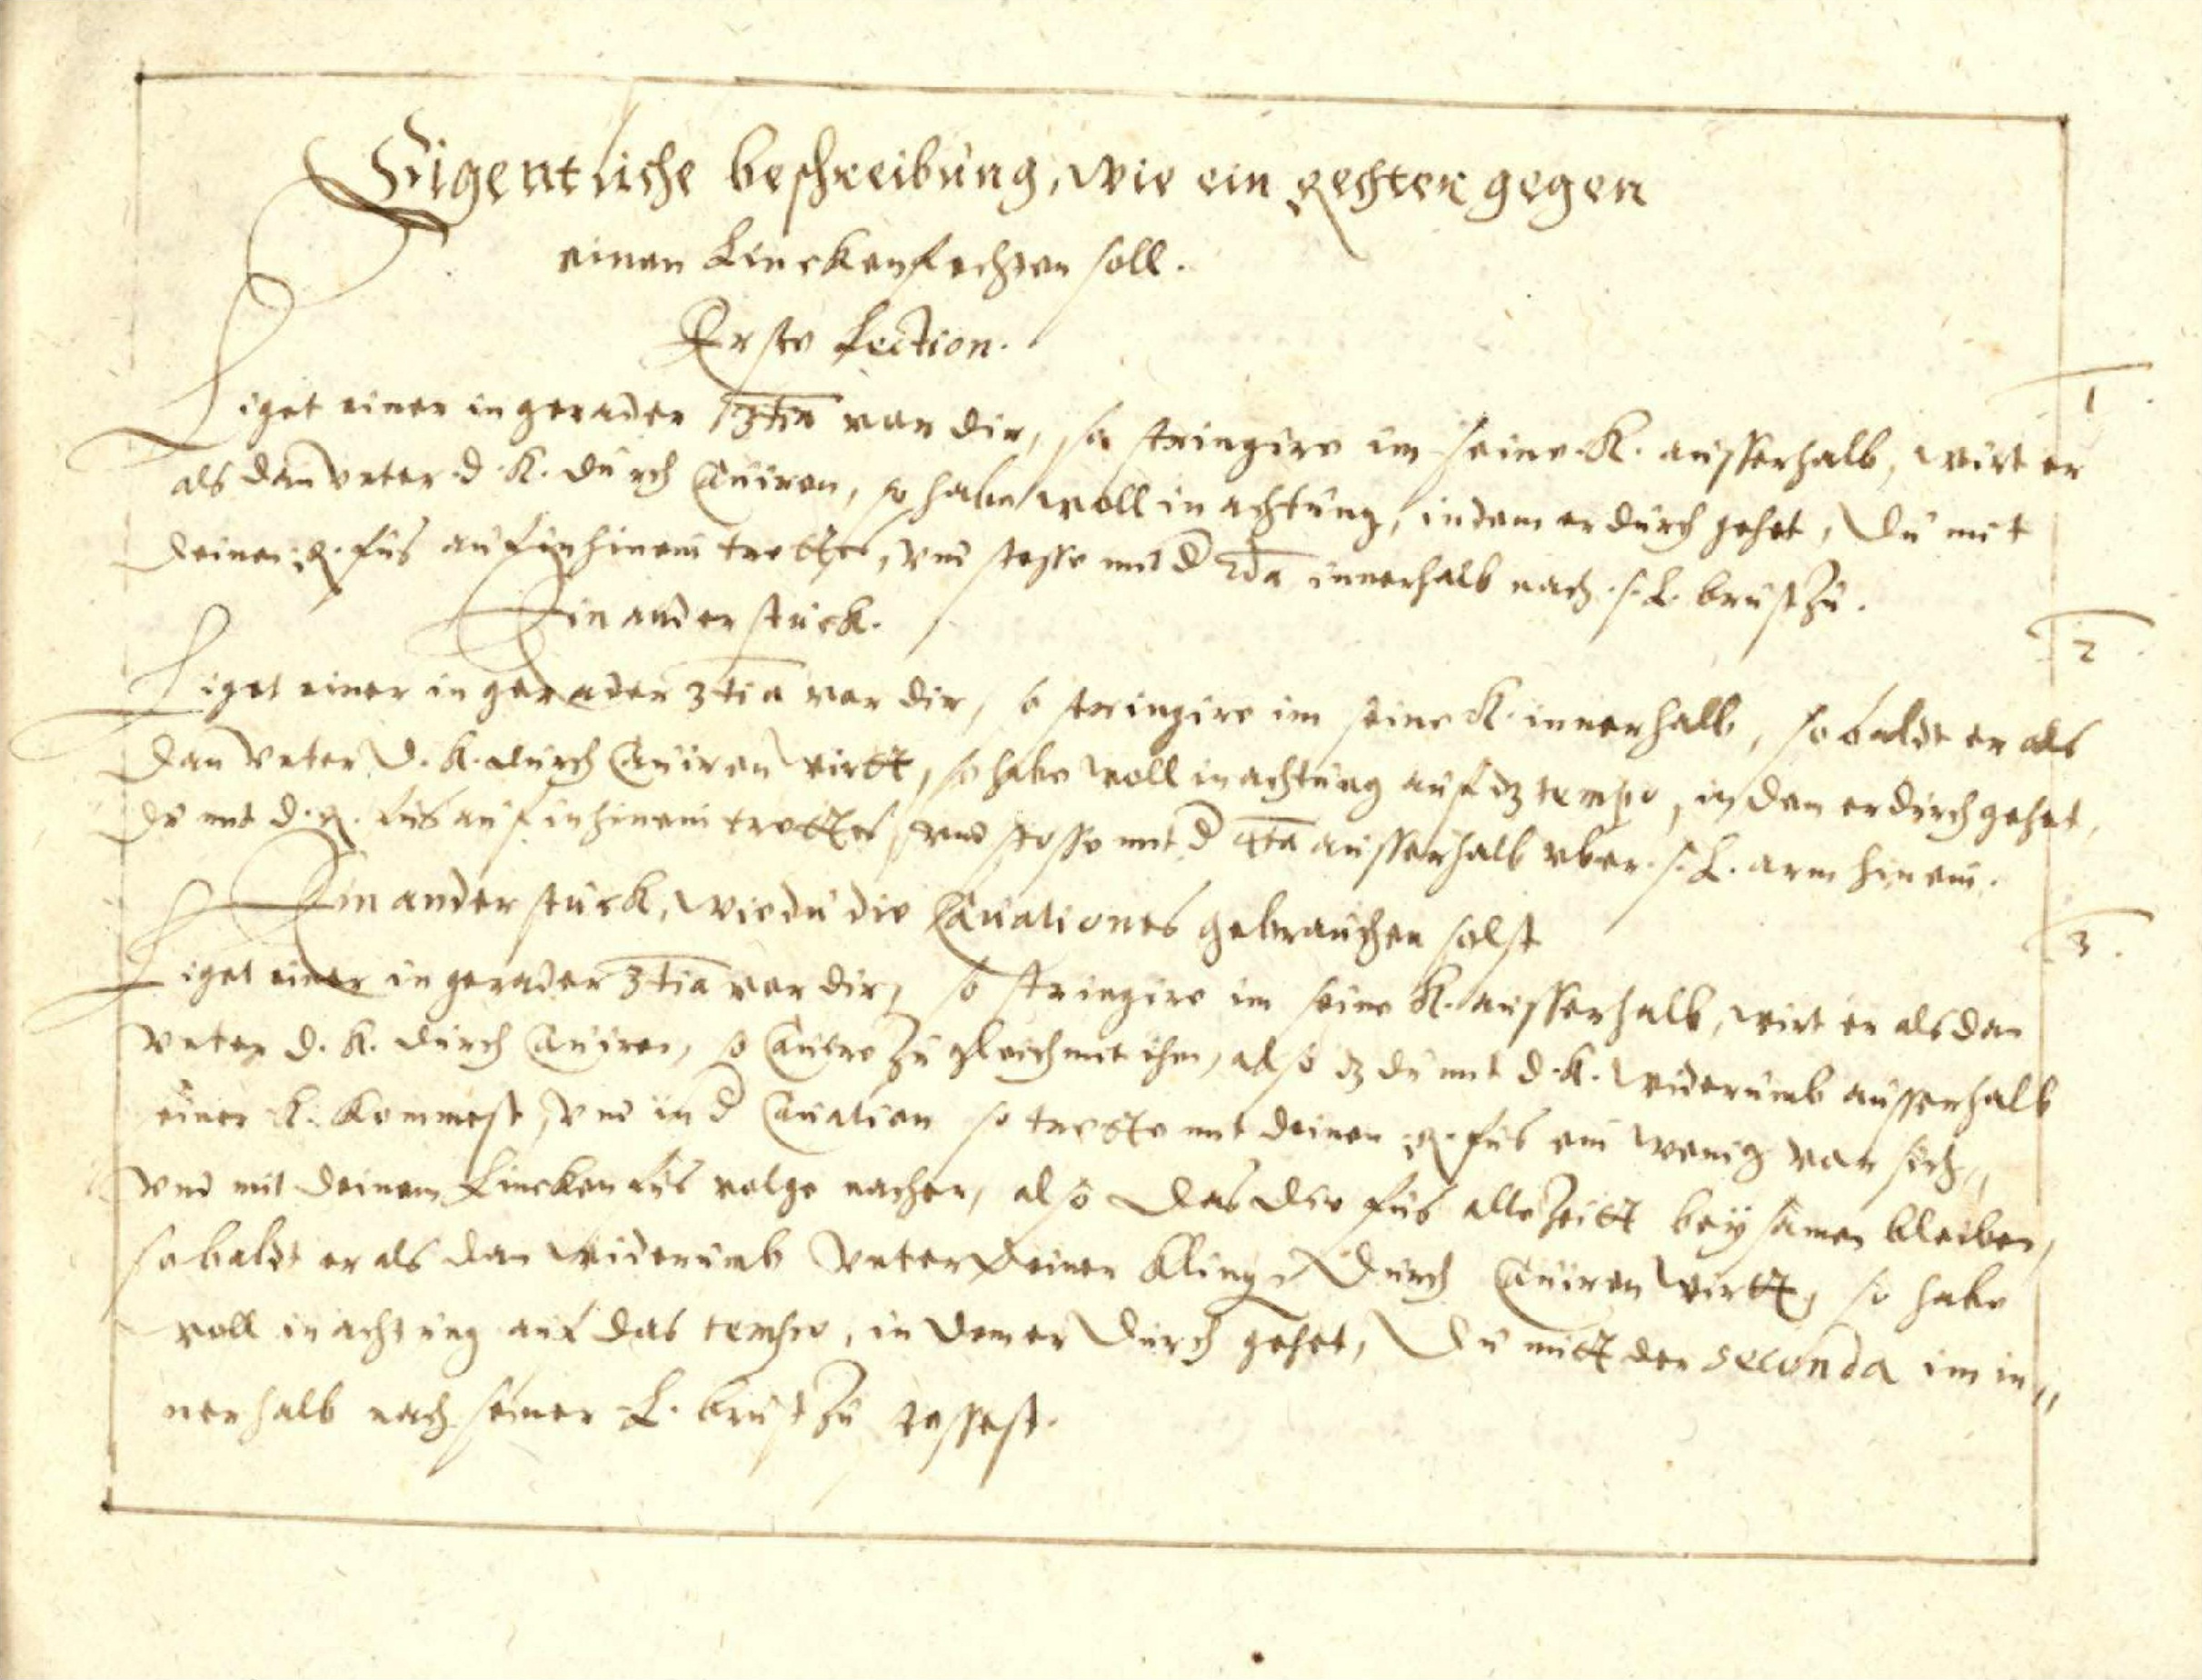 Eigentliche beschreibung, wie ein Rechter gegen
einen Lincken fechten soll.
Erste Lection.
1
Liget einer in gerader 3tia vor dir, so stringire im seine K. ausserhalb, wirt er
als dan vnter d. K. durch Cauiren, so habe woll in achtung, in dem er durch gehet, du mit
deinen R. fus auf in hinein trettest, vnd stosse mit d 2da innerhalb nach s. L. brust zu.
Ein ander stuck.
2
Liget einer in gerader 3tia vor dir, so stringire im seine K. innerhalb, so baldt er als
dan vnter d. K. durch Cauiren wirtt, so habe woll in achtung auf dz tempo, in dem er durch gehet,
du mit d. R. fus auf in hinein trettest, vnd stosse mit d 4ta ausserhalb vber s. L. arm hinein.
Ein ander stuck, wie du die Cauationes gebrauchen solst
3.
Liget einer in gerader 3tia vor dir, so stringire im seine K. ausserhalb, wirt er als dan
vnter d. K. durch Cauiren, so Cauire zu gleich mit ihm, also dz du mit d. K. widerumb ausserhalb
seiner K. kommest, vnd in d Cauation so trette mit deinen R. fus ein wenig vor sich,,
vnd mit deinem Lincken fus volge nacher, also das die fus alle Zeitt bey samen bleiben,
so baldt er als dan widerumb vnter deiner klinge durch Cauiren wirtt, so habe
woll in achtung auf das tempo, in dem er durch gehet, du mitt der seconda im in,,
nerhalb nach seiner L. brust zu stossest.